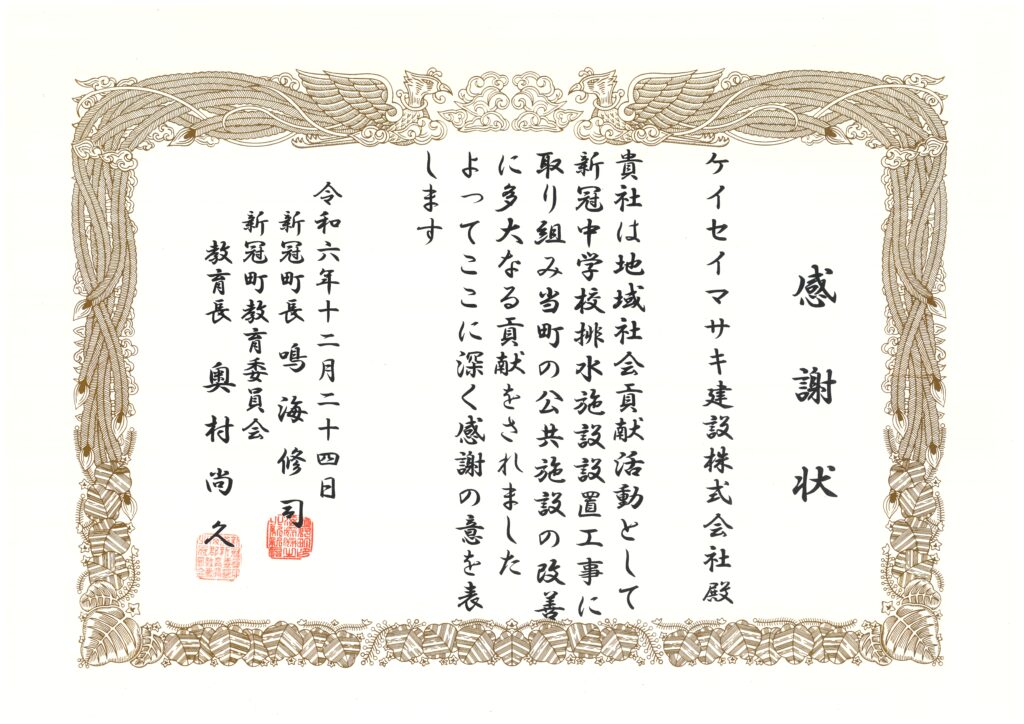 感謝状
ケイセイマサキ建設株式会社殿
貴社は地域社会貢献活動として
新冠中学校排水施設設置工事に
取り組み当町の公共施設の改善
に多大なる貢献をされました
よってここに深く感謝の意を表
します
令和六年十二月二十四日
新冠町長 鳴海修司
新冠町教育委員会
教育長 奥村尚久